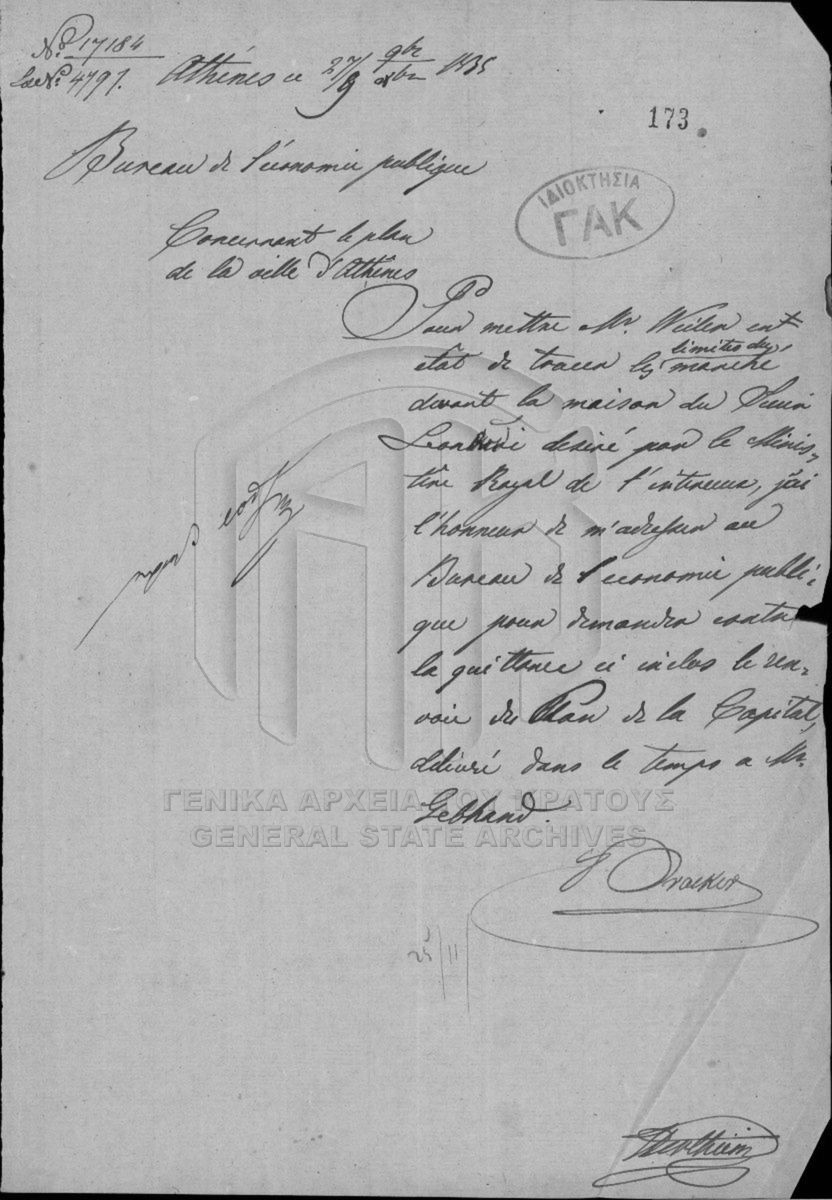 No 17184
4797.
Athênes ce 27/9 9br/xbre 1835
173
Bureau de l'économie publique
ΙΔΙΟΚΤΗΣΙΑ
ΓΑΚ
Concernant le plan
de la ville d'Athênes
Pour mettre Mr. Weiler en
êtât de tracer les limites du marché
devant la maison du Sieur
desiré par le Minis-
têre Royal de l'interieur, j'ai
l'honneur de m'adresser au
Bureau de l'economie publi-
que pour demander contre
la quittance ci inclus le ren-
voie du Plan de la Capital,
délivré dans le temps a Mr.
Gebhand.
ΓΕΝΙΚΑ ΑΡΧΕΙΑ ΤΟΥ ΚΡΑΤΟΥΣ
GENERAL STATE ARCHIVES
25/11